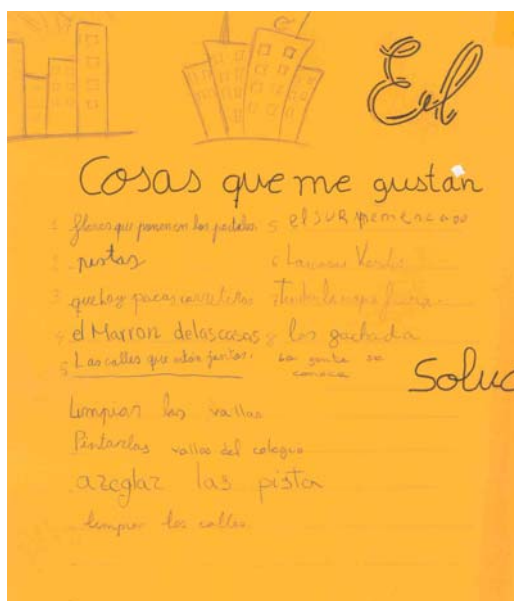 Cosas que me gustan
1 flores que ponen en los portales
2 pistas
3 que hay pocas carreteras
4 el Marron de las casas
5 Las calles que están juntas.
5 el SUR pemercado
6
7 Tender la ropa fuera
8 las fachada
La gente se
conoce
Soluc
Limpiar las vallas
Pintar las vallas del colegio
areglar las pista
limpiar las calles